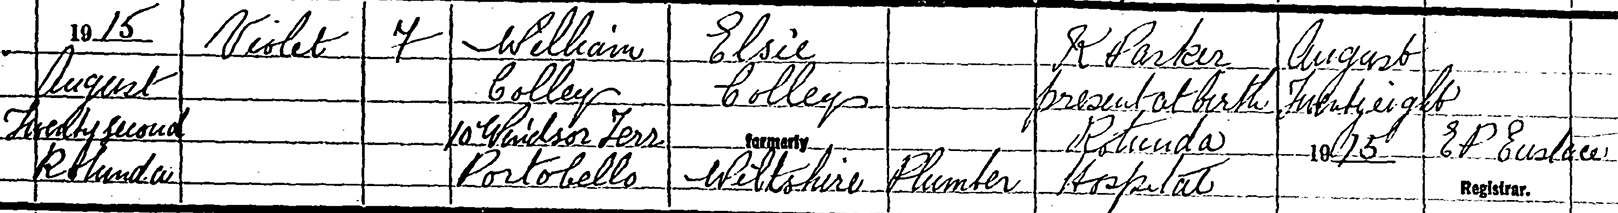 1915 Violet F William Elsie K Parker August
August Colley Colley present at birth Twenty eight
Twenty second 10 Windsor Terr formerly Rotunda 1915 E P Eustace
Rotunda Portobello Wiltshire Plumber Hospital Registrar.